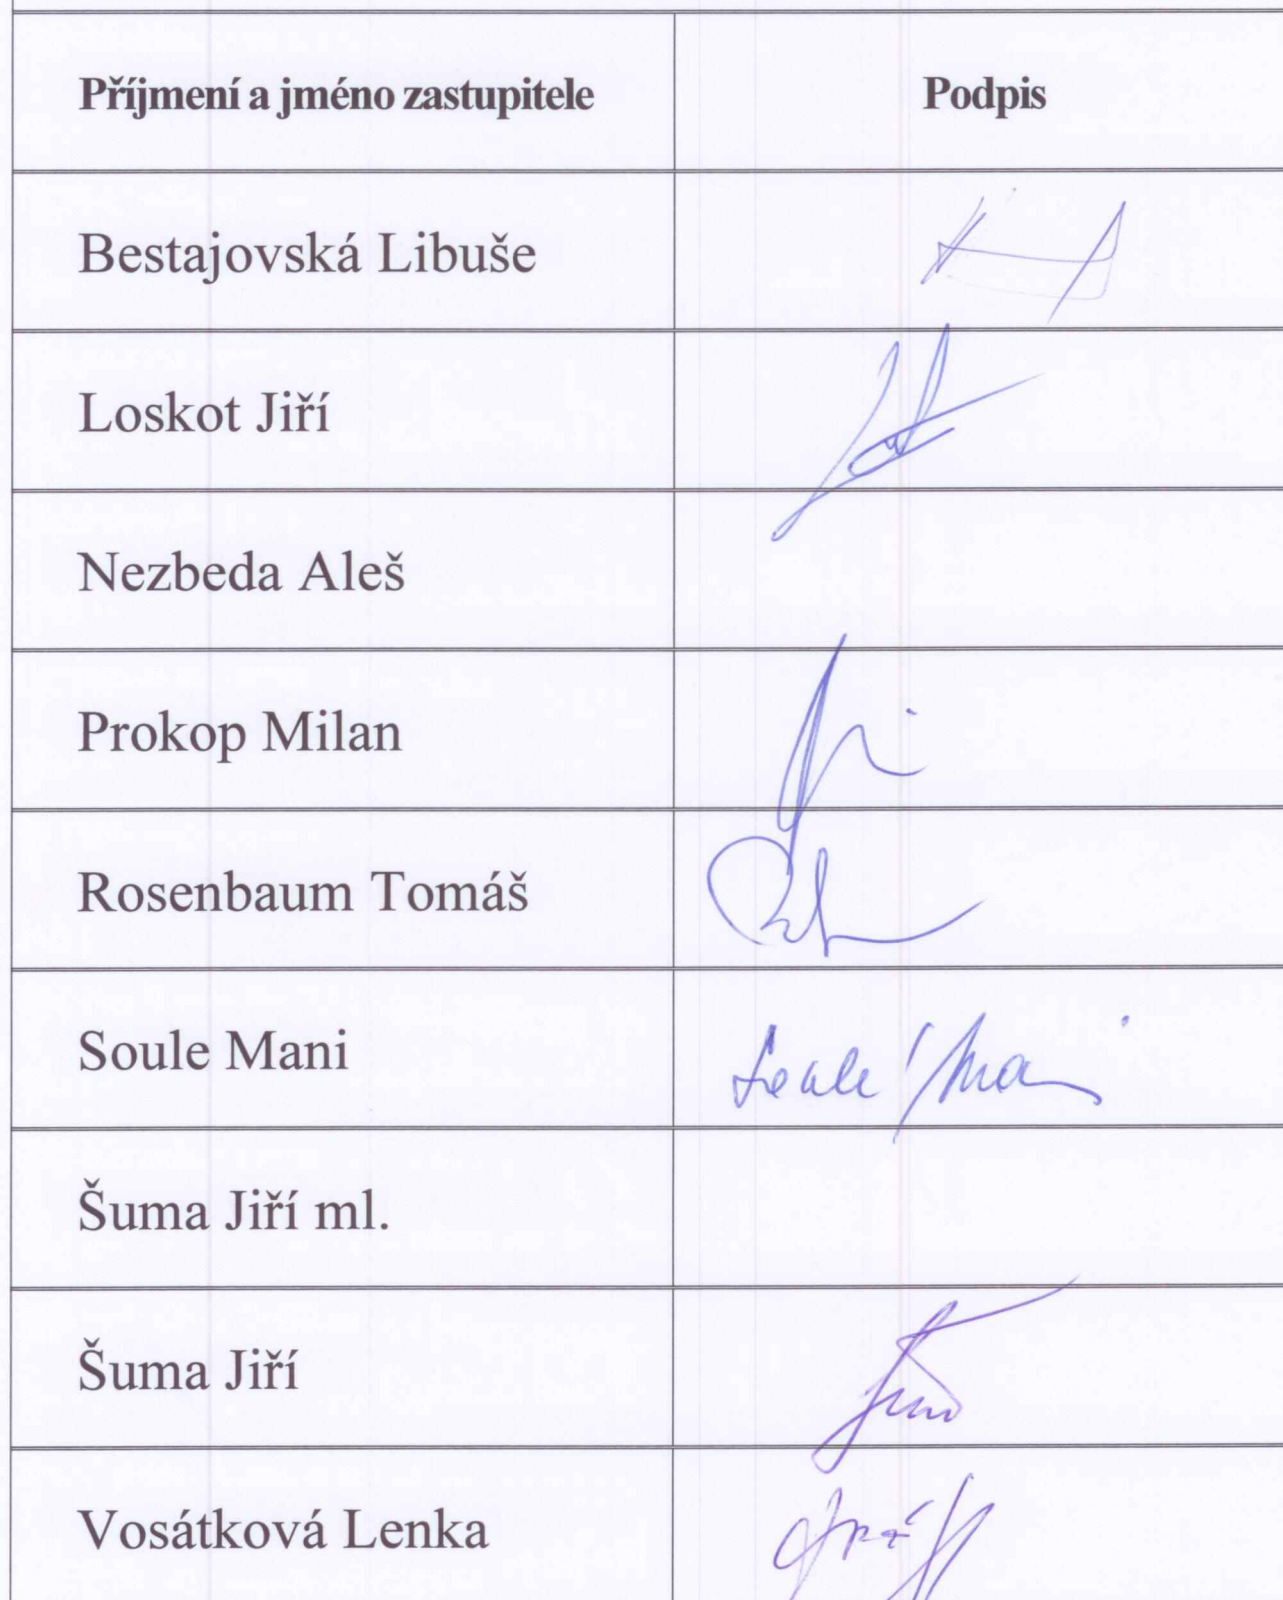 Příjmení a jméno zastupitele Podpis
Bestajovská Libuše
Loskot Jiří
Nezbeda Aleš
Prokop Milan
Rosenbaum Tomáš
Soule Mani Soule Mani
Šuma Jiří ml.
Šuma Jiří
Vosátková Lenka